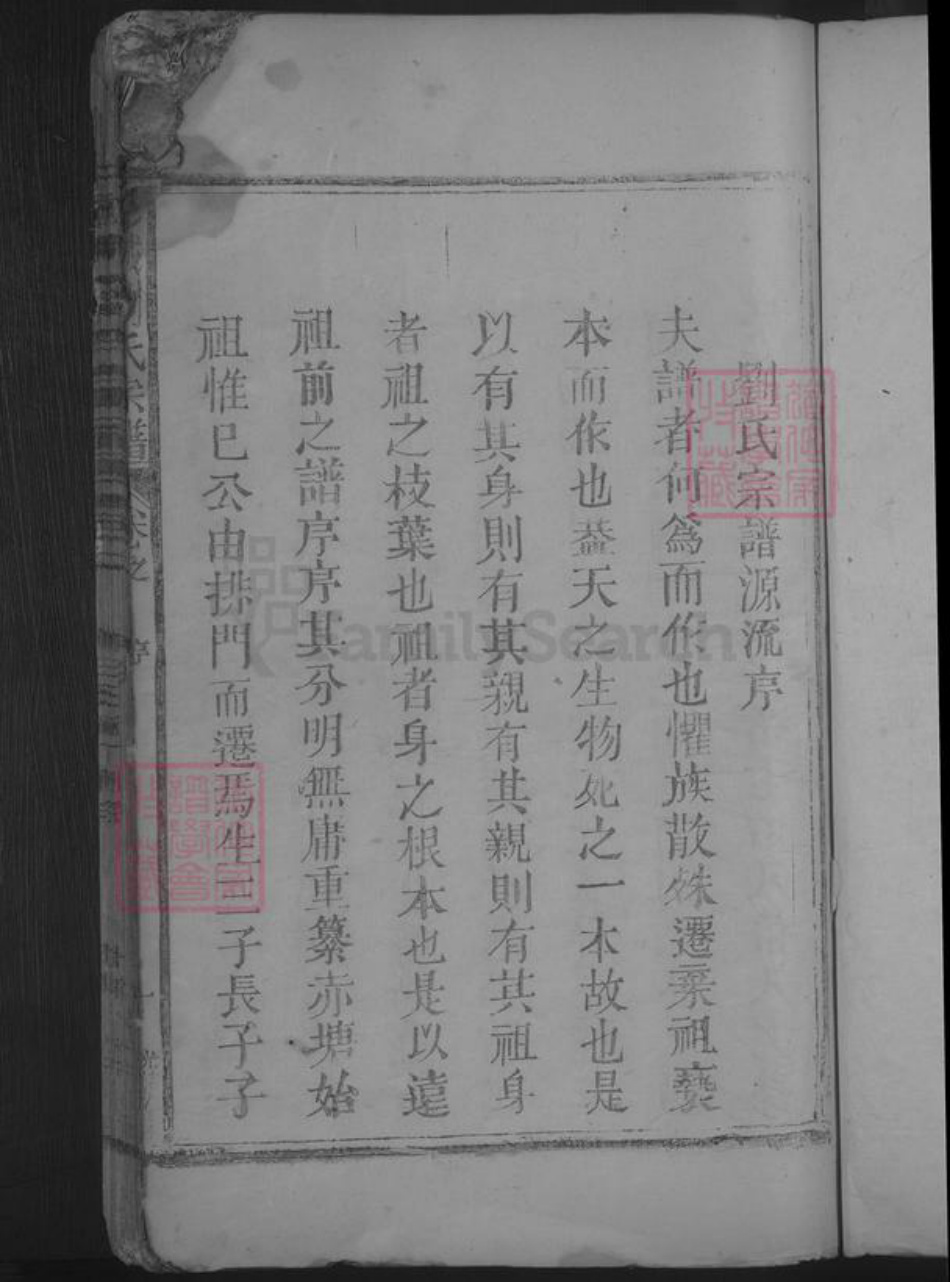 劉氏宗譜源流序
夫譜者何爲而作也懼族散殊遷棄祖褻
本而作也蓋天之生物死之一本故也是
以有其身則有其親有其親則有其祖身
者祖之枝葉也祖者身之根本也是以遠
祖前之譜序序其分明無庸重纂赤塘始
祖惟巳公由排門而遷焉生二子長子子
氏宗譜
卷之
序
一
FamilySearch